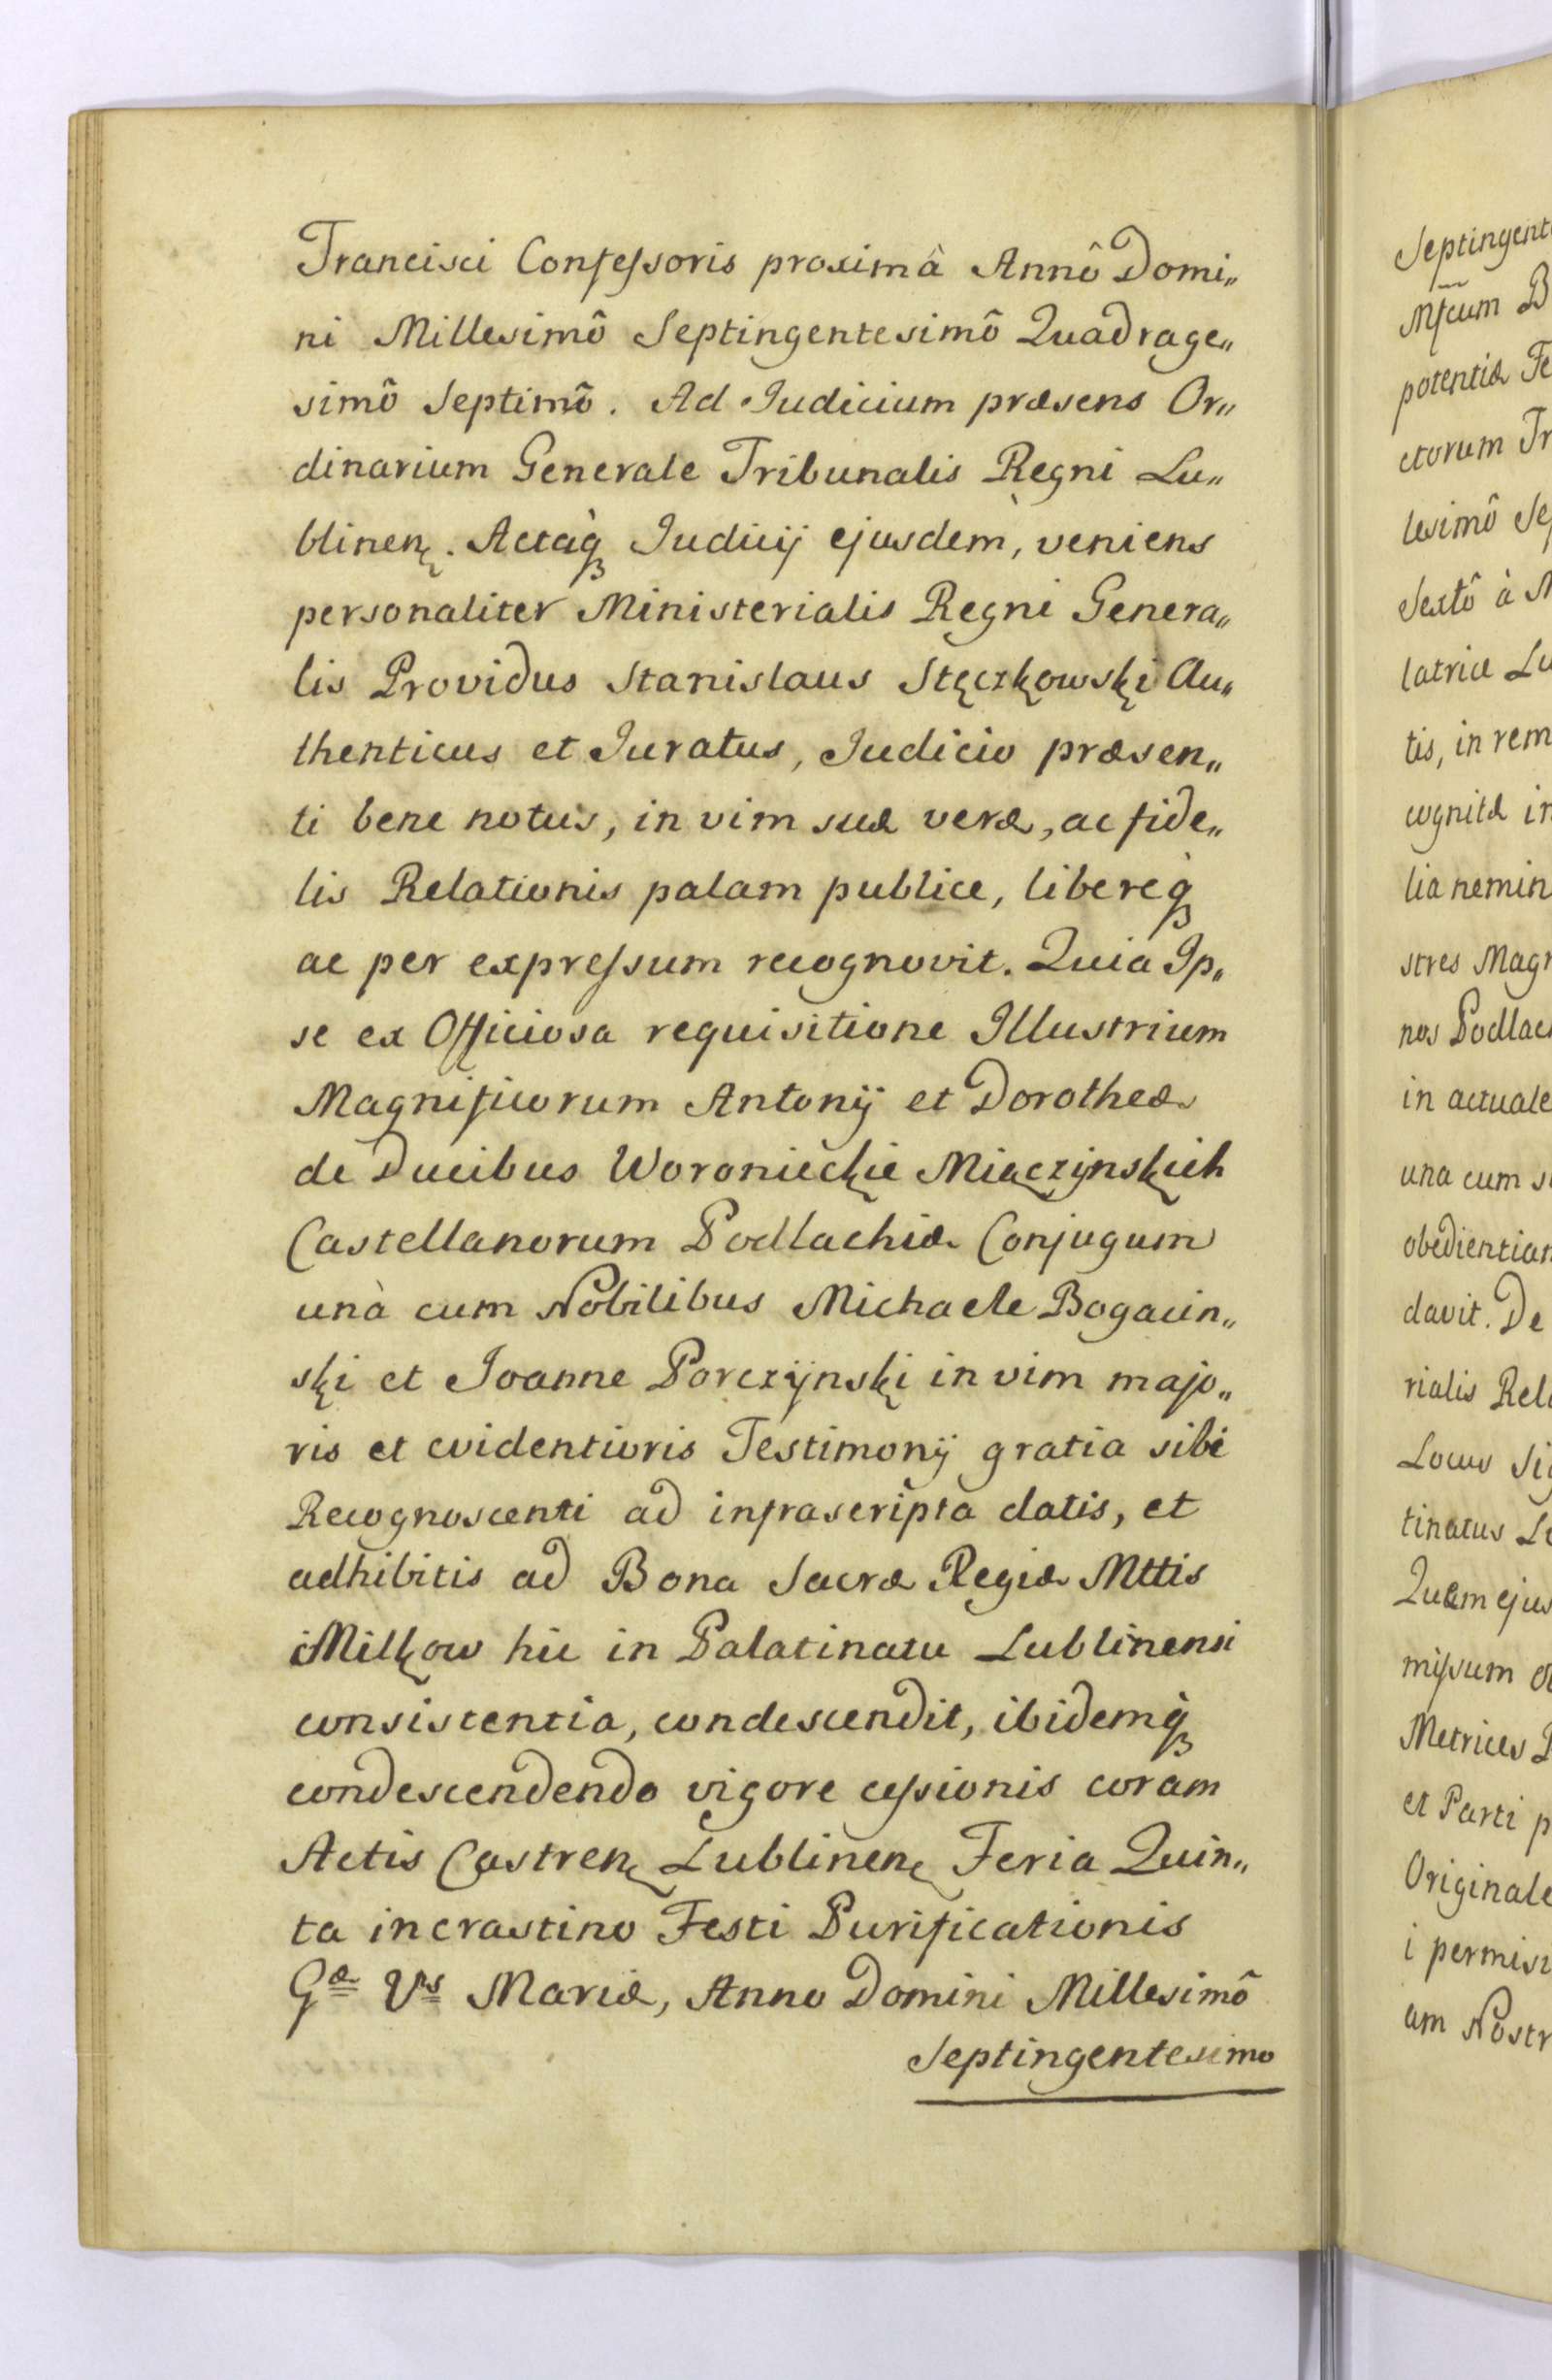 Francisci Confeſsoris proximâ Annô Domi„
ni Millesimô Septingentesimô Quadrage„
simô Septimô. Ad Judicium præsens Or„
dinarium Generale Tribunalis Regni Lu„
blinen. Actaq́ꝫ Judicij ejusdem, veniens
personaliter Ministerialis Regni Genera„
lis Providus Stanislaus Stęczkowski Au„
thenticus et Juratus, Judicio præsen„
ti bene notus, in vim suæ veræ, ac fide„
lis Relationis palam publice, libereq́ꝫ
ac per expreſsum recognovit. Quia Jp„
se ex Officiosa requisitione Jllustrium
Magnificorum Antonij et Dorotheæ
de Ducibus Woronieckie Miączynskich
Castellanorum Podlachiæ Conjugum
unà cum Nobilibus Michaele Bogacin„
ski et Joanne Porczÿnski in vim majo„
ris et evidentioris Testimonij gratia sibi
Recognoscenti ad infrascripta datis, et
adhibitis ad Bona Sacræ Regiæ Mttis
Milkow hic in Palatinatu Lublinensi
consistentia, condescendit, ibidemq́ꝫ
condescendendo vigore ceſsionis coram
Actis Castren Lublinen Feria Quin„
ta in crastino Festi Purificationis
Gæ Vis Mariæ, Anno Domini Millesimô
Septingentesimo
Septingent
Mſcum B
potentiæ Fe
ctorum Tr
lesimô Sep
Sextô à M
latriæ Lu
tis, in rem
cognitæ in
lia nemin
stres Magn
nos Podlac
in actuale
una cum s
obedientian
davit. De
rialis Rela
Locus Sig
tinatus L
Quam ejus
miſsum o
Metrices
et Parti p
Originale
i permis
am Nostr